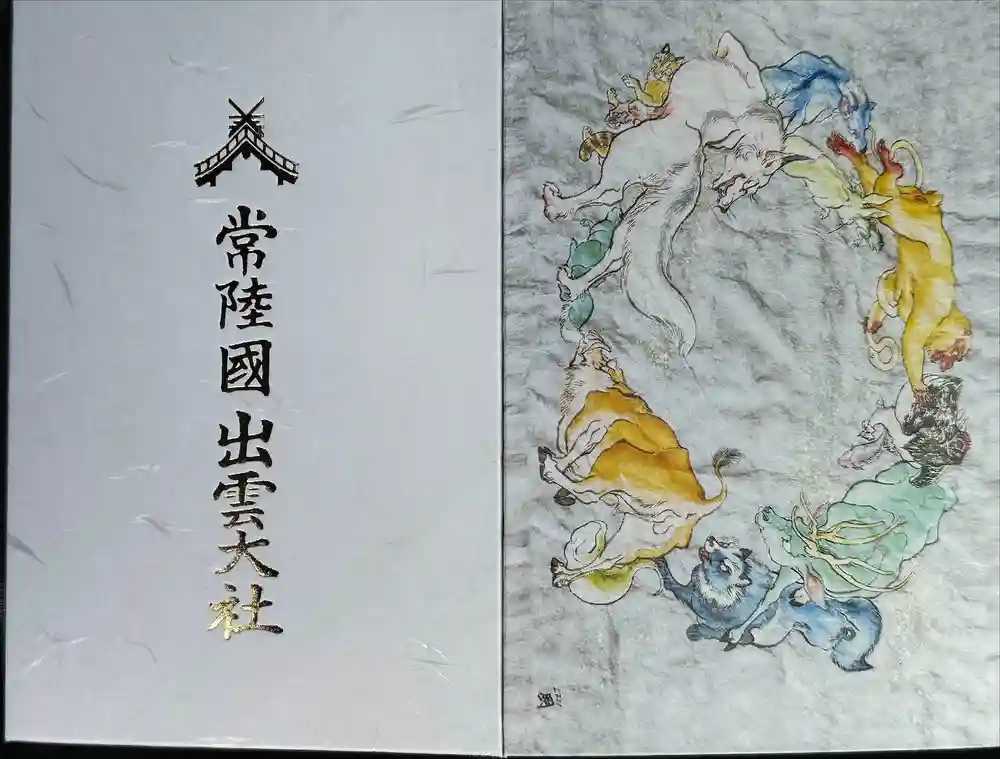 常陸國出雲大社